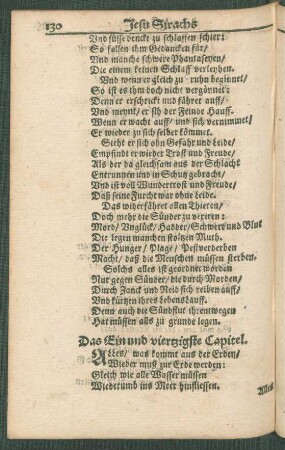 130 Jesu Sirachs
Und süsse denckt zu schlaffen schier:
So fallen ihm Gedancken für/
Und manche schwere Phantaseyen/
Die einem keinen Schlaff verleyhen.
Und wenn er gleich zu ruhn beginnet/
So ist es ihm doch nicht vergönnet:
Denn er erschrickt und fähret auff/
Und meynt/ er seh der Feinde Hauff.
Wenn er wacht auff/ und sich vernimmet/
Er wieder zu sich selber kömmet.
Sieht er sich ohn Gefahr und Leide/
Empfindt er wieder Trost und Freude/
Als der da gleichsam aus der Schlacht
Entrunnen und in Schutz gebracht/
Und ist voll Wundertrost und Freude/
Daß seine Furcht war ohne Leide.
Das wiederfähret allen Thieren/
Doch mehr die Sünder zu vexiren:
Mord/ Unglück/ Hadder/ Schwert und Blut
Die legen manchen stoltzen Muth.
Der Hunger/ Plage/ Pestverderben
Macht/ daß die Menschen müssen sterben.
Solchs alles ist geordnet worden
Nur gegen Sünder/ die durch Morden/
Durch Zanck und Neid sich reiben auff/
Und kürtzen ihres Lebens Lauff.
Denn auch die Sündflut ihrentwegen
Hat müssen alls zu grunde legen.
Das Ein und viertzigste Capitel.
Alles/ was kommt aus der Erden/
Wieder muß zur Erde werden:
Gleich wie alle Wasser müssen
Wiederumb ins Meer hinfliessen.
Alles